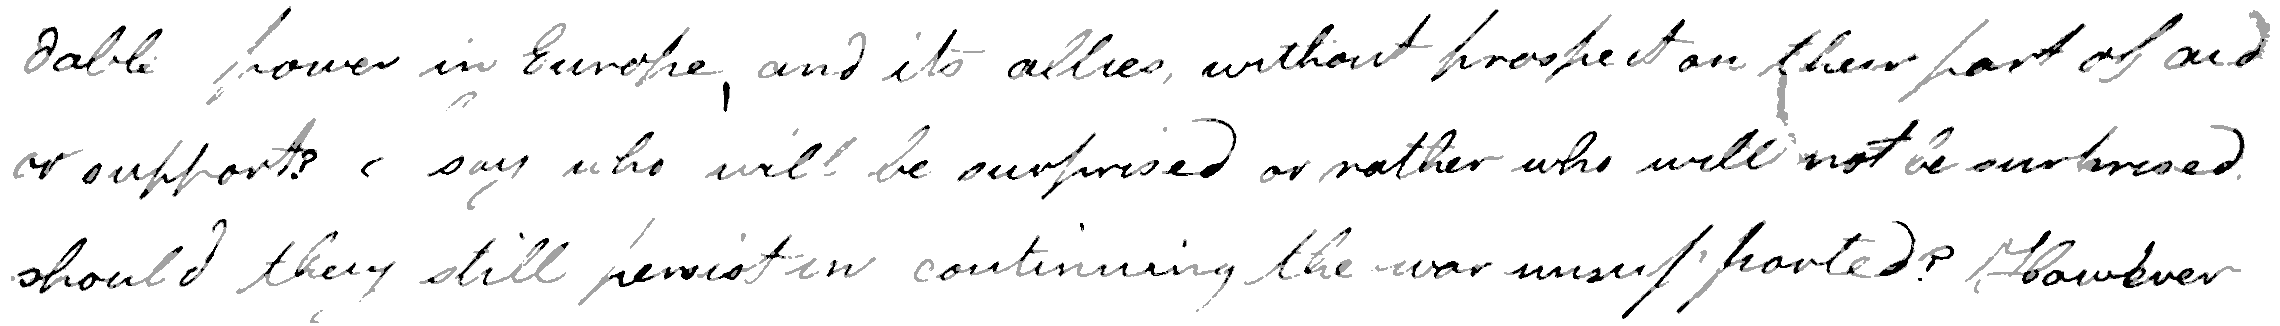 dable power in Europe, and its allies, without prospect on their part of aid
or support? I say who will be surprised or rather who will not be surprised
should they still persist in continuing the war unsupported? However